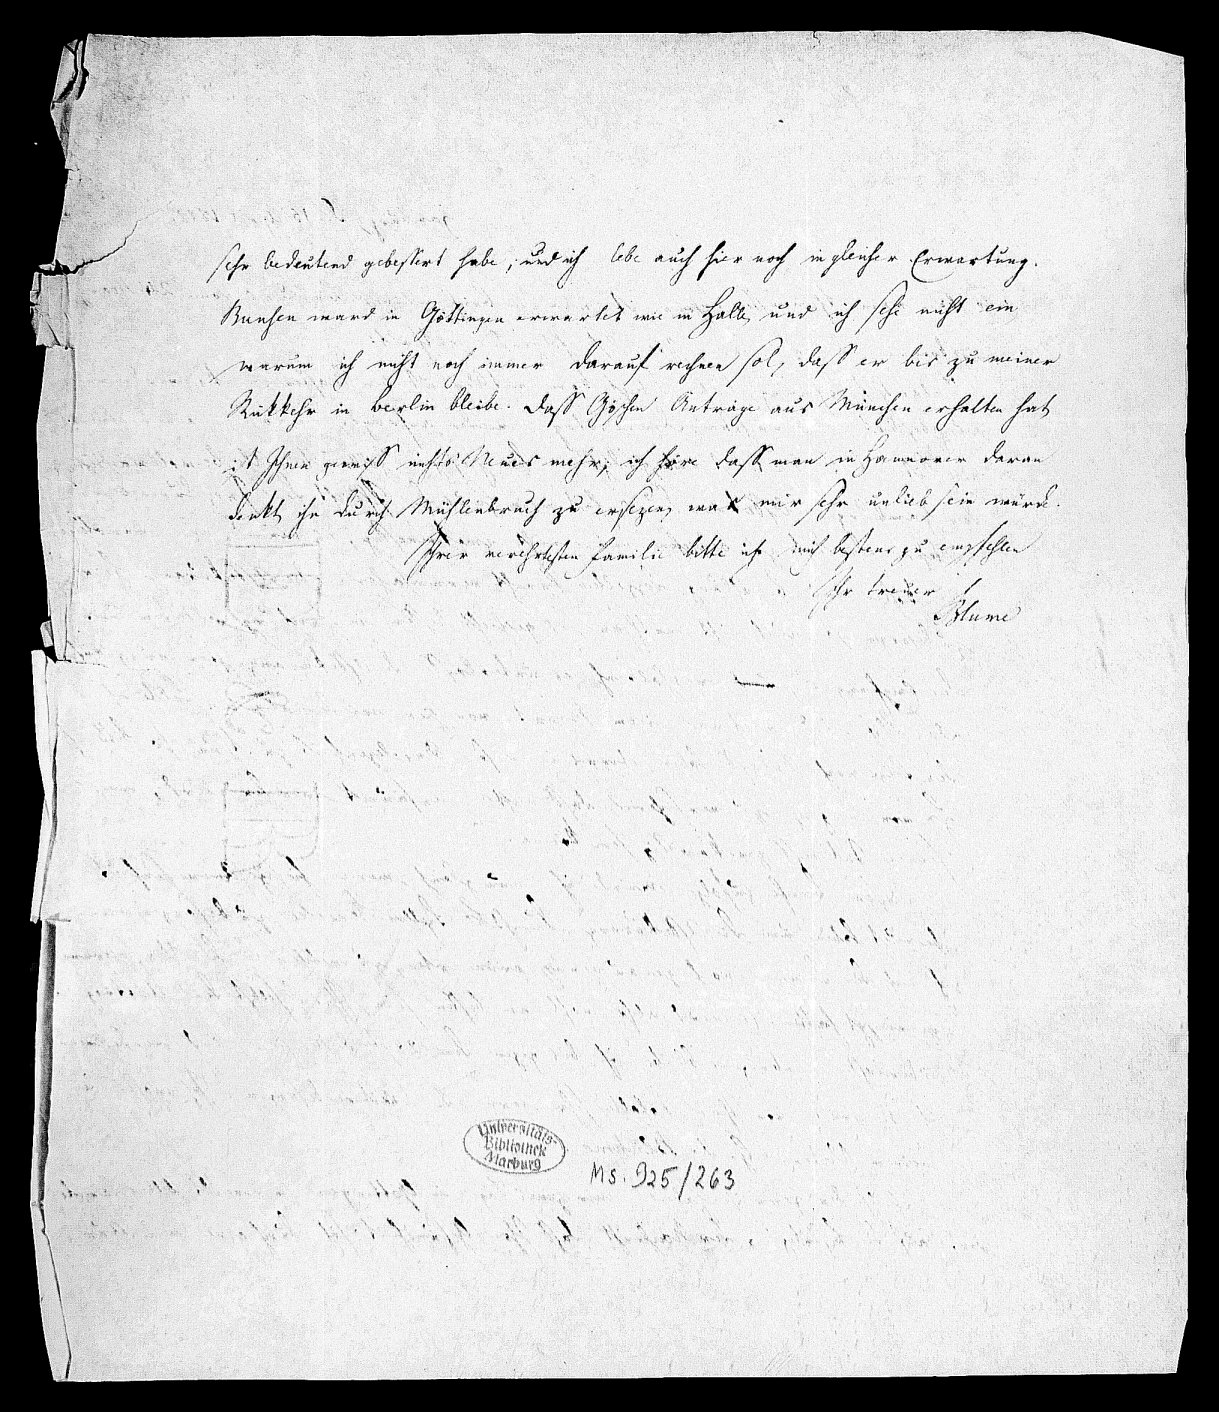 sehr bedeutend gebessert habe, und ich lebe auch hier noch in gleicher Erwartung.
Bunsen ward in Göttingen erwartet wie in Halle, und ich sehe nicht ein
warum ich nicht noch immer darauf rechnen sol, dass er bis zu meiner
Rükkehr in Berlin bleibe. Dass Göschen Anträge aus München erhalten hat,
ist Ihnen gewiss nichts Neues mehr; ich höre dass man in Hannover daran
denkt, ihn durch Mühlenbruch zu ersezen, was mir sehr unlieb sein würde.
Ihrer verehrtesten Familie bitte ich mich bestens zu empfehlen
Ihr treuer
Blume
Universitäts-
Bibliothek
Marburg
Ms. 925/263